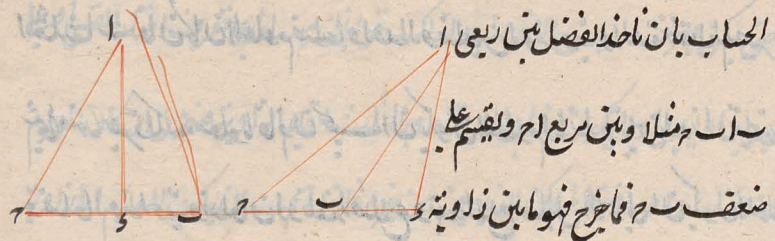 الحساب بان ناخذ الفضل بين مربعي ا
ب ا ب ح مثلا وبين مربع ا ح ونقسم علي
ضعف ب ح فما خرج فهو ما بين زاوية
ا
ا
ح ء ب
ح ب ء